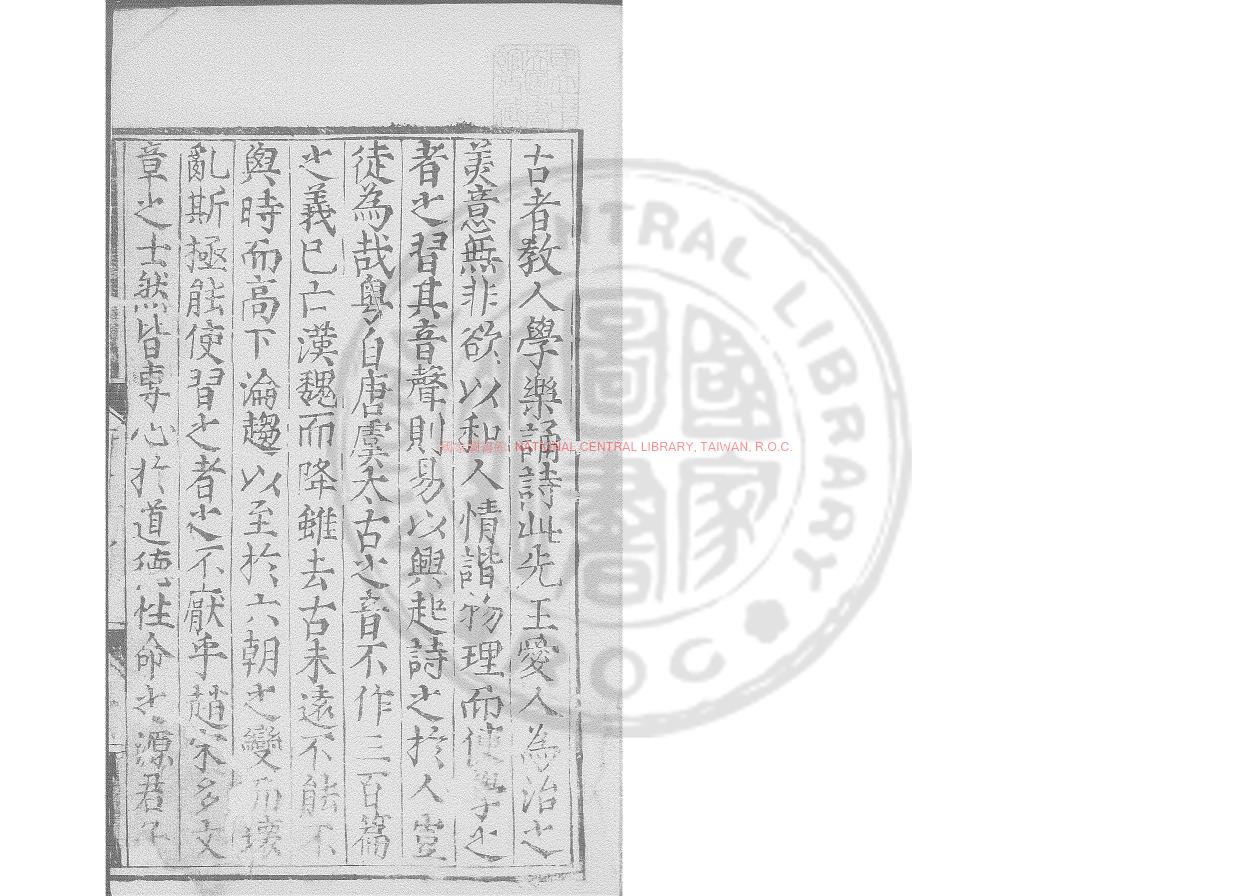 古者教人學樂誦詩此先王愛人為治之
美意無非欲以和人情諧物理而使學之
者之習其音聲則易以興起詩之於人豈
徒為哉粵自唐虞太古之音不作三百篇
之義已亡漢魏而降雖去古未遠不能不
與時而高下淪趨以至於六朝之變而壞
亂斯極能使習之者之不厭乎趙宋多文
章之士然皆專心於道德性命之源君子
國家圖書館 NATIONAL CENTRAL LIBRARY, TAIWAN, R.O.C.
NTRAL LIBRARY
ROC
圖
國
書
家